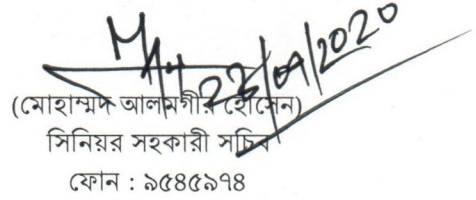 23/09/2020
(মোহাম্মদ আলমগীর হোসেন)
সিনিয়র সহকারী সচিব
ফোন : ৯৫৪৫৯৭৪